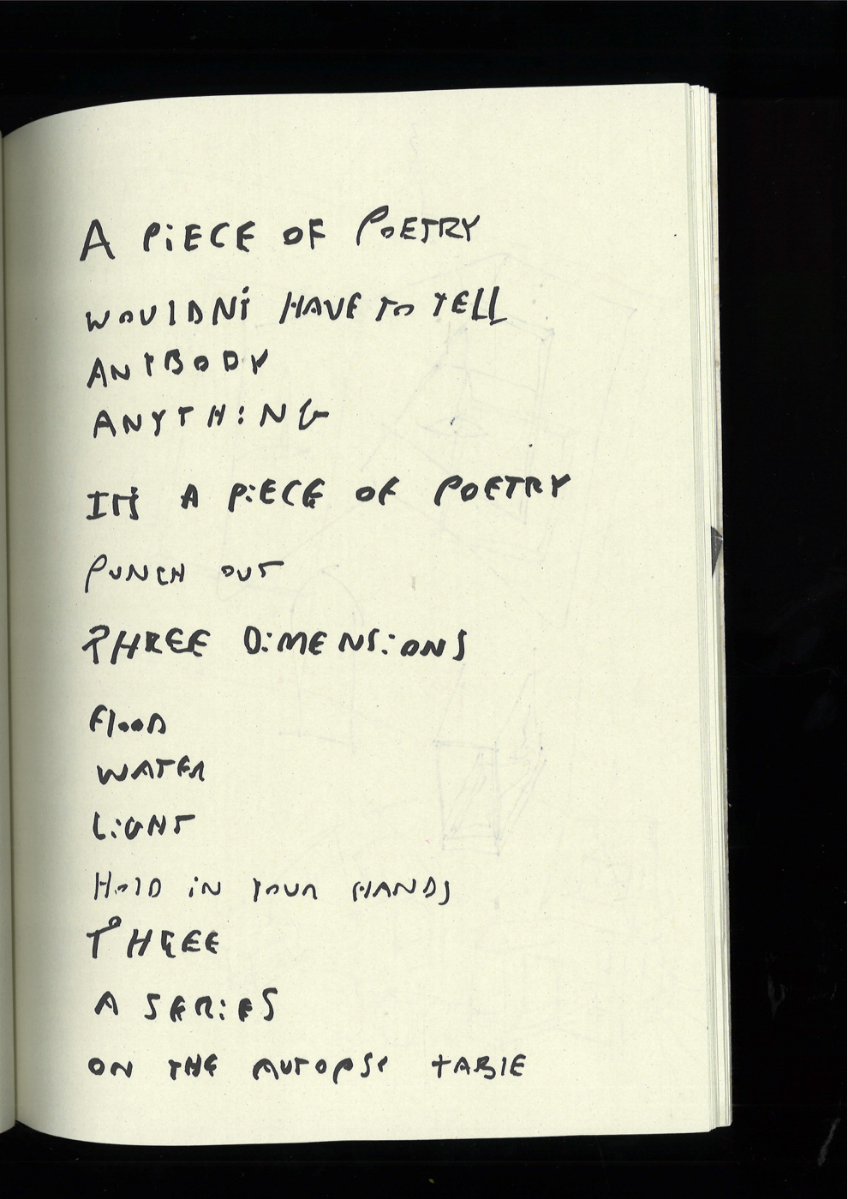 A PiECE OF POETRY
WOULDN'T HAVE TO TELL
ANYBODY
ANYTHING
IT'S A PiECE OF POETRY
PUNCH OUT
THREE DiMENSiONS
FLOOD
WATER
LiGHT
HOLD iN YOUR HANDS
THREE
A SERiES
ON THE AUTOPSY TABLE